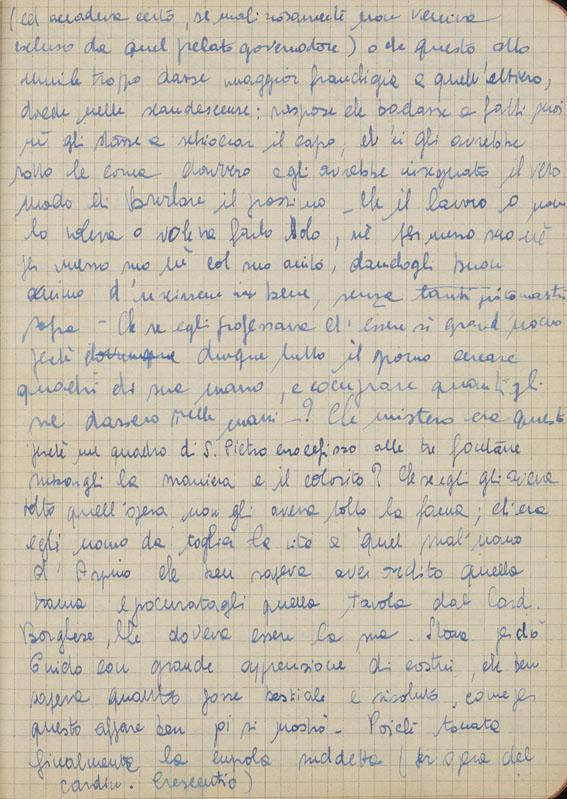 (ed accadeva certo, se maliziosamente non veniva
escluso da quel pelato governadore) o che questo atto
umile troppo dasse maggior franchigia a quell'altiero,
diede nelle scandescenze: rispose che badasse a fatti suoi
nè gli stasse a schioccar il capo, ch'ei gli avrebbe
rotto le corna davvero e gli avrebbe insegnato il vero
modo di burlare il prossimo - Che il lavoro o non
lo voleva o voleva farlo solo, nè per mezzo suo nè
per mezzo suo nè col suo aiuto, dandogli buon
animo d'uscirsene in bene, senza tanti
- Che se egli professava d'esser sì grand'uomo
perchè dunque tutto il giorno cercare
quadri di sua mano, e comprare quanti gli
ne dassero nelle mani -? Che mistero era questo
perchè nel quadro di S. Pietro crocefisso alle tre fontane
rubargli la maniera e il colorito? Che se egli gli aveva
tolto quell'opera, non gli aveva tolto la fama; ch'era
egli uomo da toglier la vita a quel mal'uomo
d'Arpino che ben sapeva aver ordito quella
trama e procuratagli quella tavola dal Card.
Borghese, che doveva essere la sua. Stava perciò
Guido con grande apprensione di costui, che ben
sapeva quanto fosse bestiale e risoluto, come per
questo affare ben poi si mostrò - Poichè toccata
finalmente la cupola suddetta (per opera del
cardin. Crescentio)